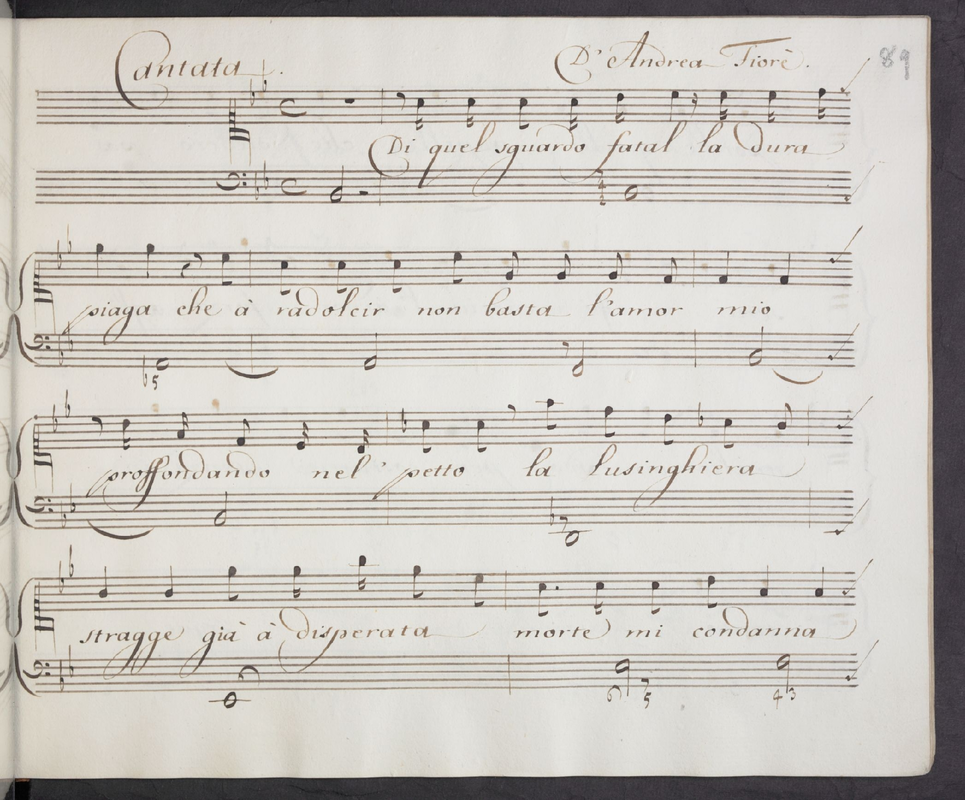 Cantata. D' Andrea Fiorè. 89
Di quel sguardo fatal la dura
piaga che à radolcir non basta l'amor mio
proffondando nel' petto la lusinghiera
stragge già à disperata morte mi condanna